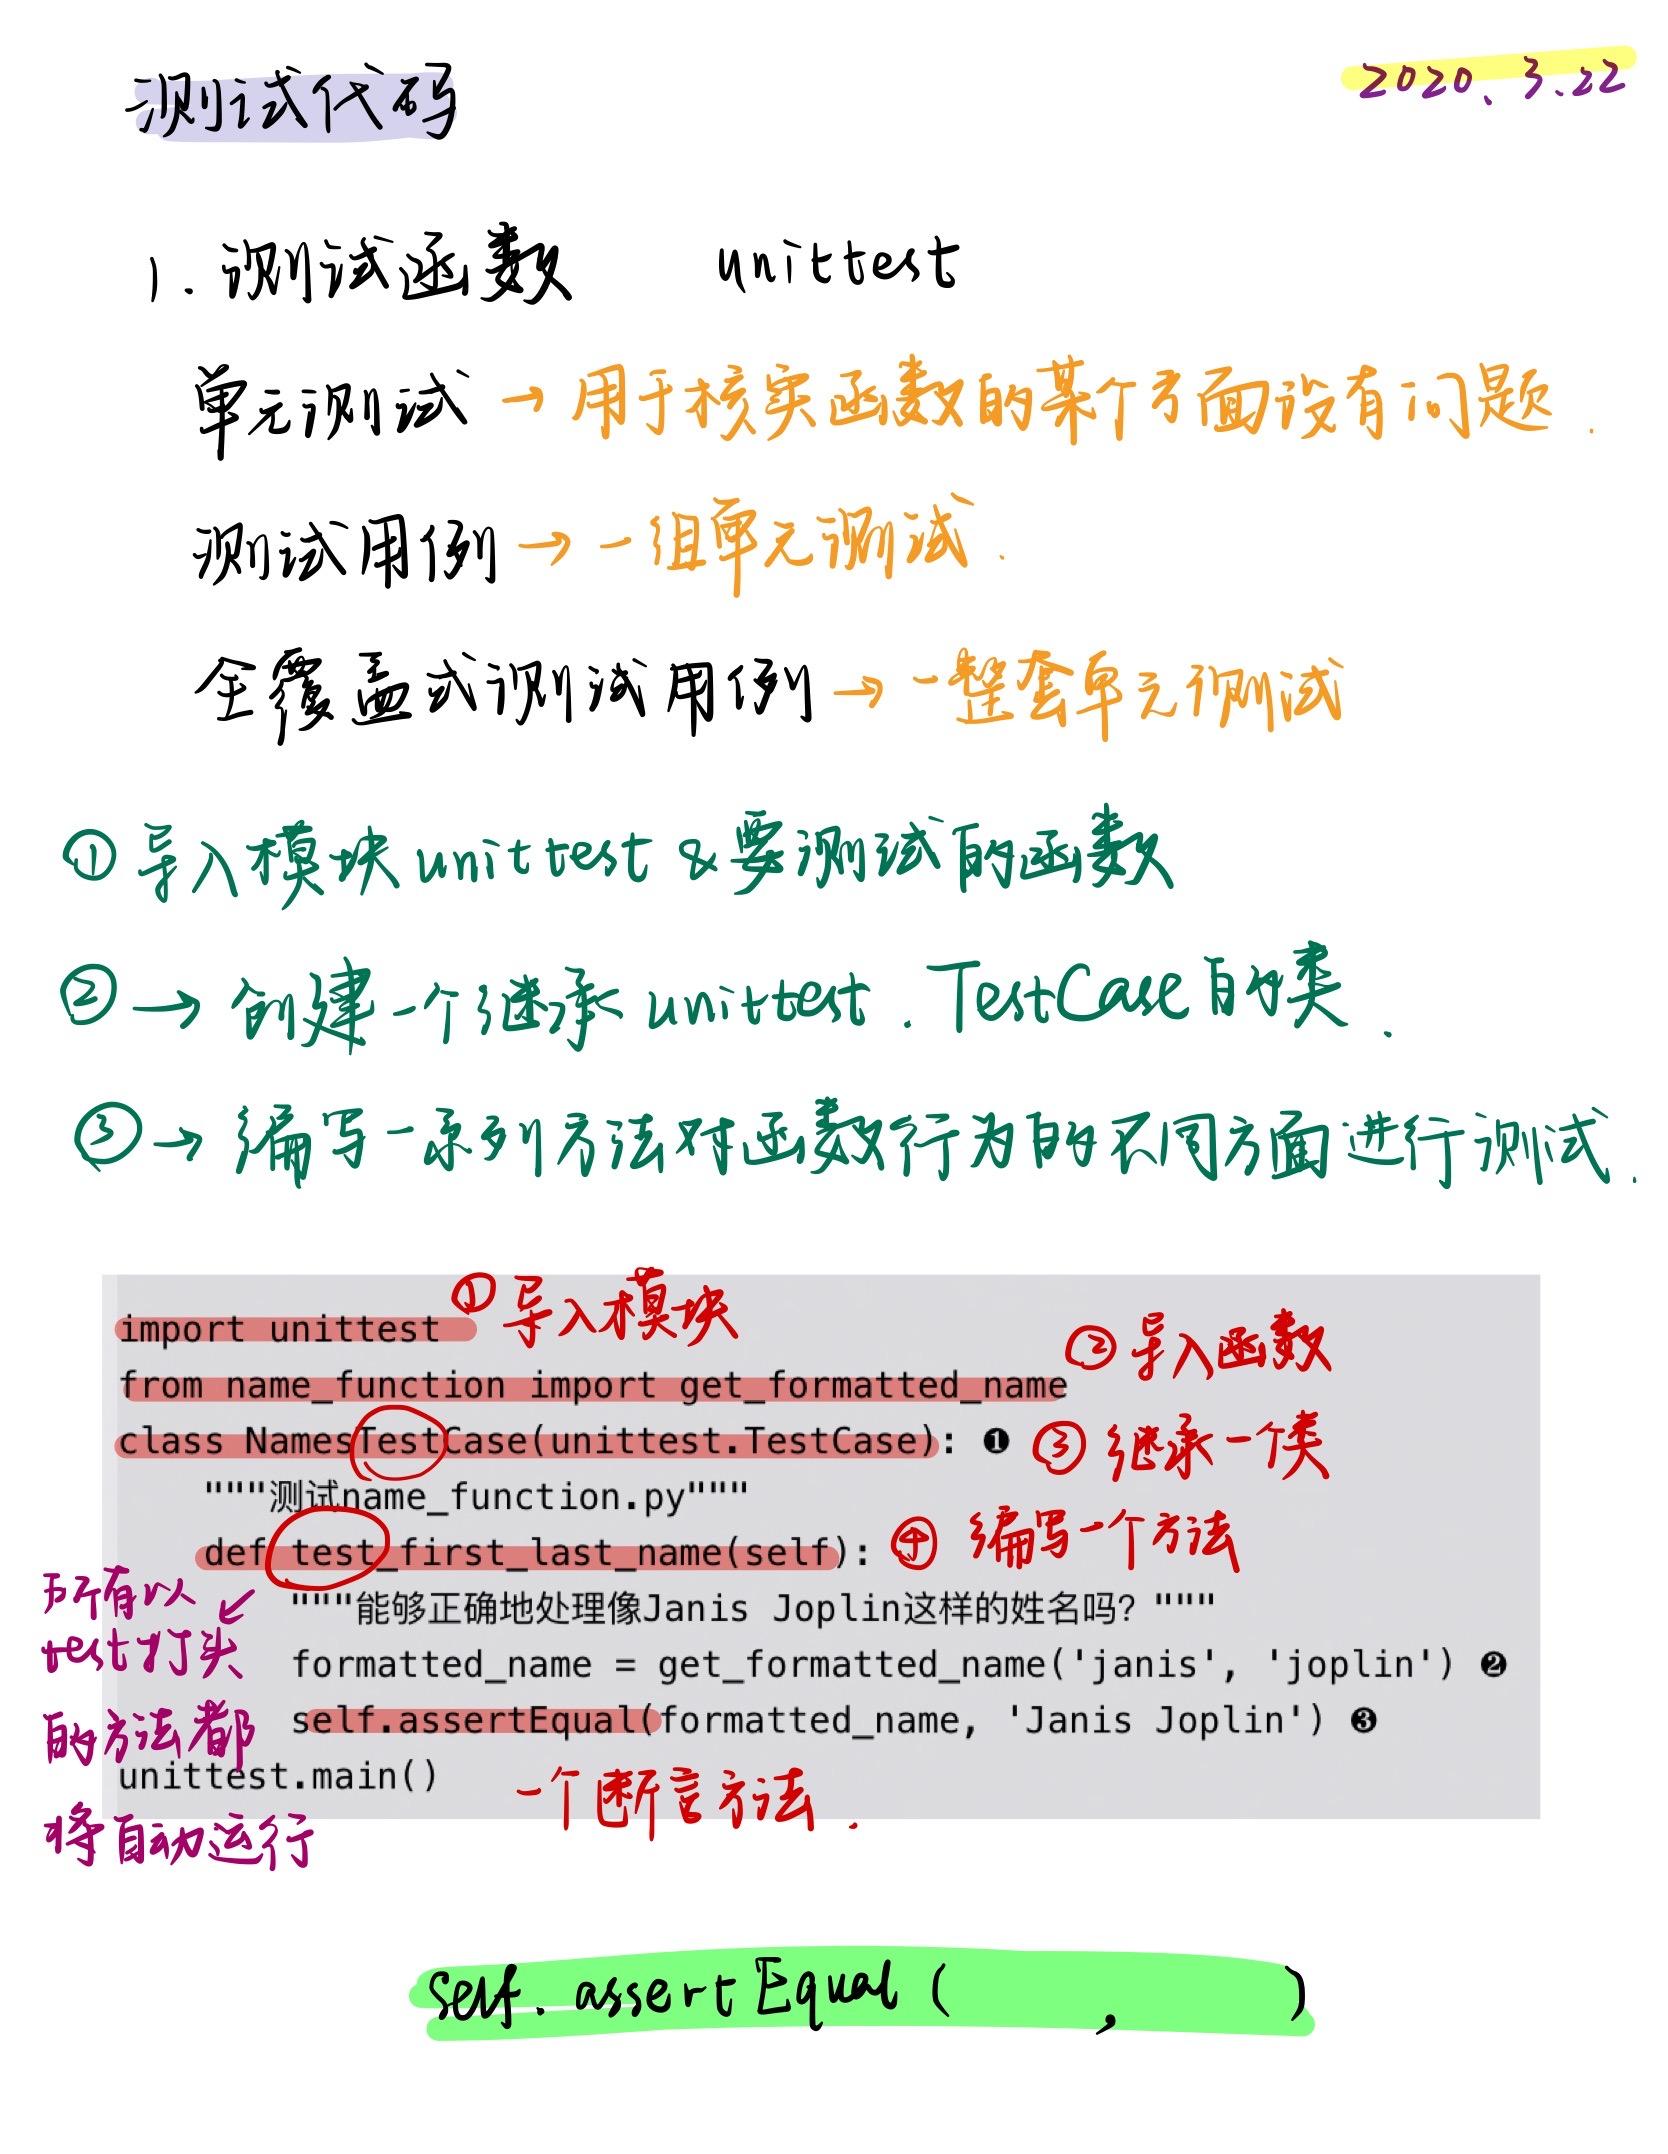 测试代码
2020.3.22
1. 测试函数 unittest
单元测试 → 用于核实函数的某个方面没有问题.
测试用例 → 一组单元测试.
全覆盖式测试用例 → 一整套单元测试
① 导入模块 unittest & 要测试的函数
② → 创建一个继承 unittest.TestCase 的类.
③ → 编写一系列方法对函数行为的不同方面进行测试.
import unittest ① 导入模块
from name_function import get_formatted_name ② 导入函数
class NamesTestCase(unittest.TestCase): ❶ ③ 继承一个类
"""测试name_function.py"""
def test_first_last_name(self): ④ 编写一个方法
"""能够正确地处理像Janis Joplin这样的姓名吗？"""
formatted_name = get_formatted_name('janis', 'joplin') ❷
self.assertEqual(formatted_name, 'Janis Joplin') ❸
unittest.main()
一个断言方法.
所有以 ↙
test打头
的方法都
将自动运行
self.assertEqual( , )